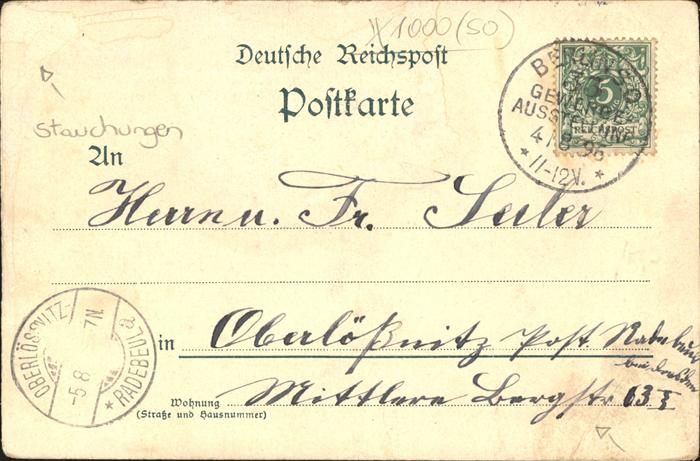 1000 (50)
Deutsche Reichspost
Postkarte
Stauchungen
BERLIN
GEWERBE
AUSSTELLUNG
4/8.96
* 11-12V. *
5
REICHSPOST
An
Herrn u. Fr. Seiler
OBERLÖSSNITZ-
RADEBEUL a
5.8
7N.
in Oberlößnitz Post Radebeul
bei Dresden
Wohnung
(Straße und Hausnummer)
Mittlere Bergstr 63 I